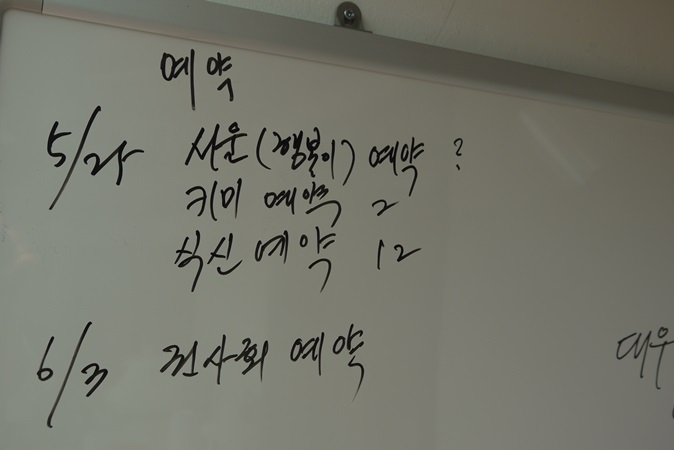 예약
5/25 사운(행볼이) 예약 ?
키미 예약 2
식신 예약 12
6/3 전사회 예약
대우